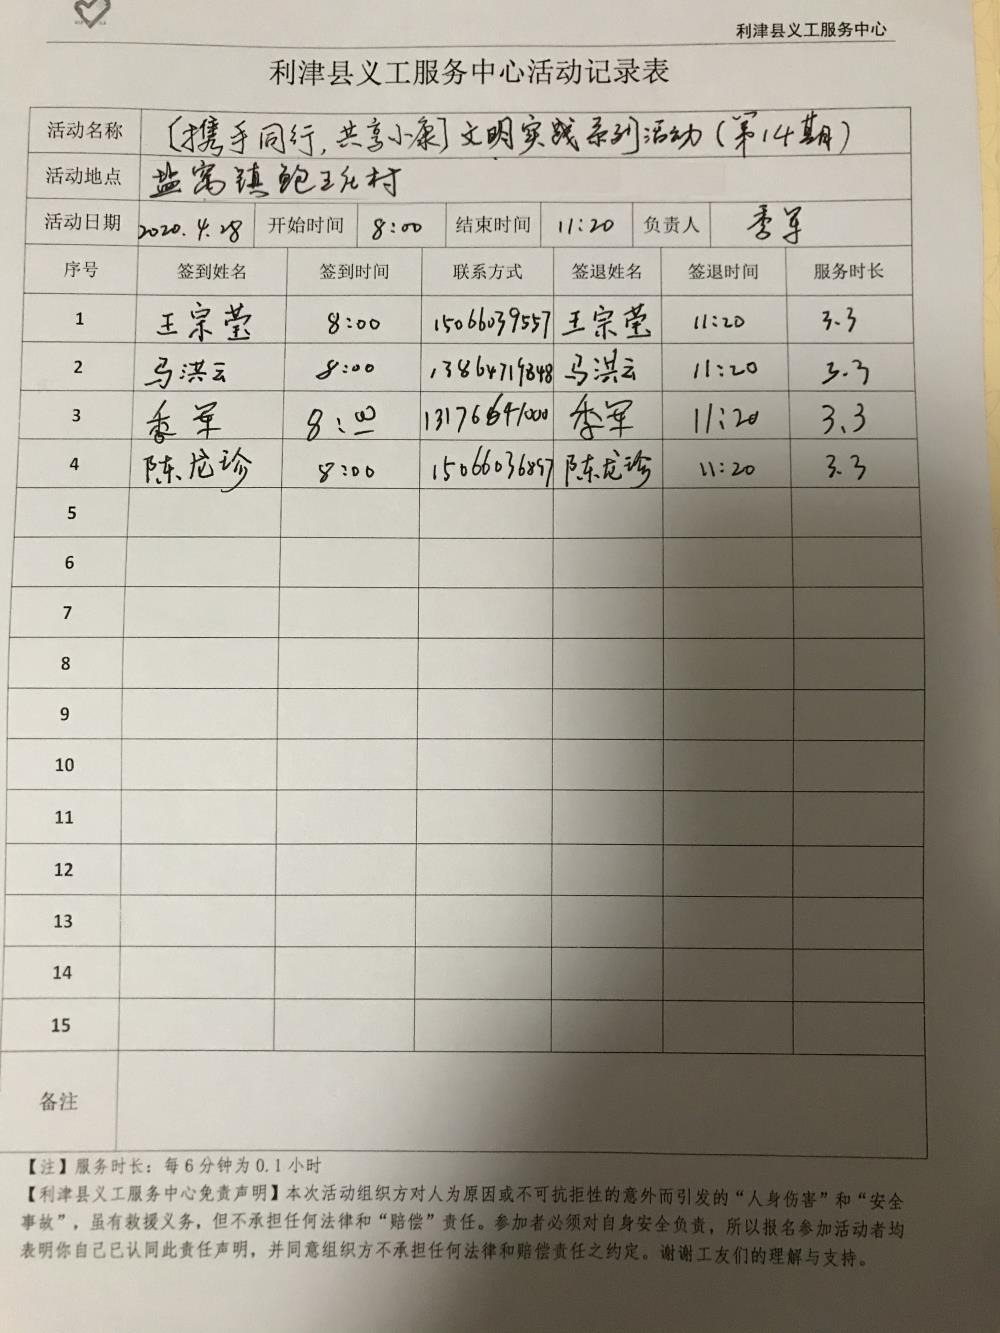 利津县义工服务中心
利津县义工服务中心活动记录表
活动名称 [携手同行,共享小康]文明实践系列活动(第14期)
活动地点 盐窝镇鲍王庄村
活动日期 2020.4.28 开始时间 8:00 结束时间 11:20 负责人 季军
序号 签到姓名 签到时间 联系方式 签退姓名 签退时间 服务时长
1 王宗莹 8:00 15066039557 王宗莹 11:20 3.3
2 马洪云 8:00 马洪云 11:20 3.3
3 季军 8:00 季军 11:20 3.3
4 陈龙珍 8:00 15066036897 陈龙珍 11:20 3.3
5
6
7
8
9
10
11
12
13
14
15
备注
【注】服务时长：每6分钟为0.1小时
【利津县义工服务中心免责声明】本次活动组织方对人为原因或不可抗拒性的意外而引发的“人身伤害”和“安全
事故”，虽有救援义务，但不承担任何法律和“赔偿”责任。参加者必须对自身安全负责，所以报名参加活动者均
表明你自己已认同此责任声明，并同意组织方不承担任何法律和赔偿责任之约定。谢谢工友们的理解与支持。